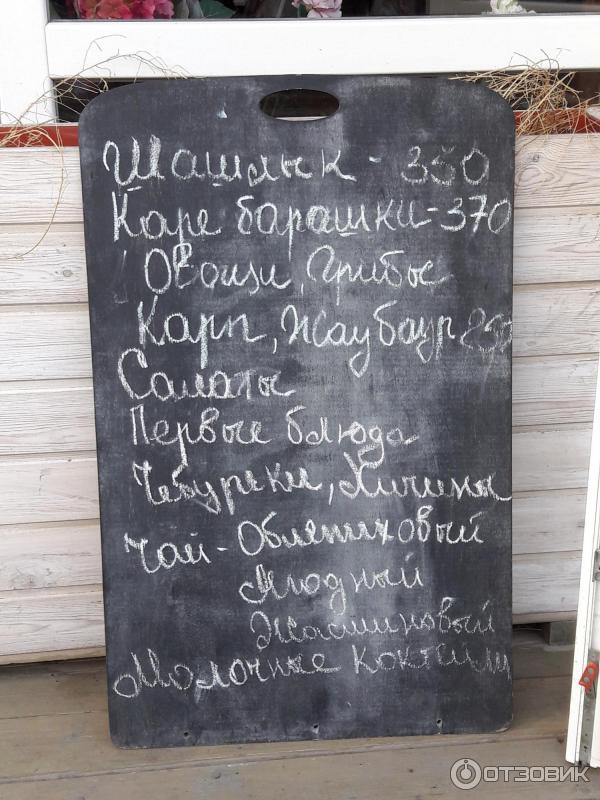 Шашлык - 350
Каре барашки - 370
Овощи, Грибы
Карп, Жаубаур
Салаты
Первые блюда
Чебуреки, Хичины
Чай - Облепиховый
Ягодный
Жасминовый
Молочные коктейли
ОТЗОВИК